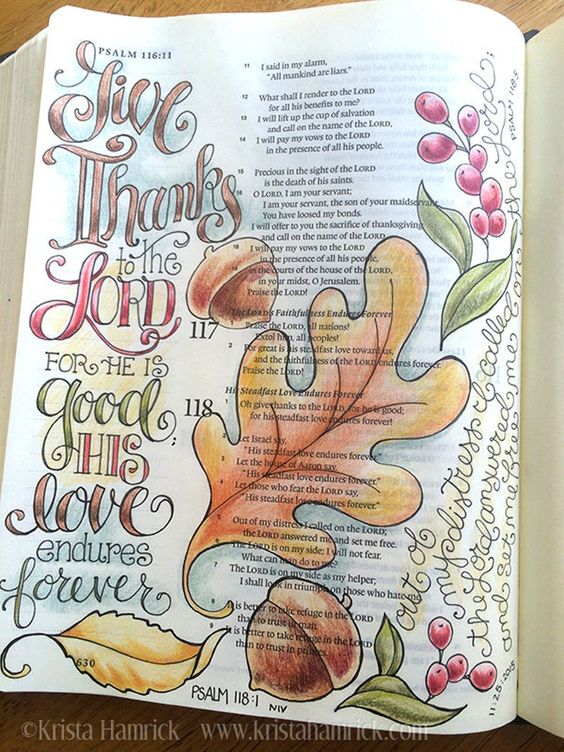 PSALM 116:11
Give
Thanks
to the
LORD
FOR HE IS
good;
HIS
love
endures
forever
630
PSALM 118:1 NIV
11 I said in my alarm,
"All mankind are liars."
12 What shall I render to the LORD
for all his benefits to me?
13 I will lift up the cup of salvation
and call on the name of the LORD,
14 I will pay my vows to the LORD
in the presence of all his people.
15 Precious in the sight of the LORD
is the death of his saints.
16 O LORD, I am your servant;
I am your servant, the son of your maidservant.
You have loosed my bonds.
I will offer to you the sacrifice of thanksgiving
and call on the name of the LORD.
18 I will pay my vows to the LORD
in the presence of all his people,
in the courts of the house of the LORD,
in your midst, O Jerusalem.
Praise the LORD!
The LORD's Faithfulness Endures Forever
117 Praise the LORD, all nations!
Extol him, all peoples!
2 For great is his steadfast love toward us,
and the faithfulness of the LORD endures forever.
Praise the LORD!
His Steadfast Love Endures Forever
118 1 Oh give thanks to the LORD, for he is good;
for his steadfast love endures forever!
2 Let Israel say,
"His steadfast love endures forever."
3 Let the house of Aaron say,
"His steadfast love endures forever."
4 Let those who fear the LORD say,
"His steadfast love endures forever."
5 Out of my distress I called on the LORD;
the LORD answered me and set me free.
6 The LORD is on my side; I will not fear.
What can man do to me?
7 The LORD is on my side as my helper;
I shall look in triumph on those who hate me.
8 It is better to take refuge in the LORD
than to trust in man.
9 It is better to take refuge in the LORD
than to trust in princes.
out of
my distress I called on the Lord;
the Lord answered me
and set me free
PSALM 118:5
11·25·2015
©Krista Hamrick www.kristahamrick.com